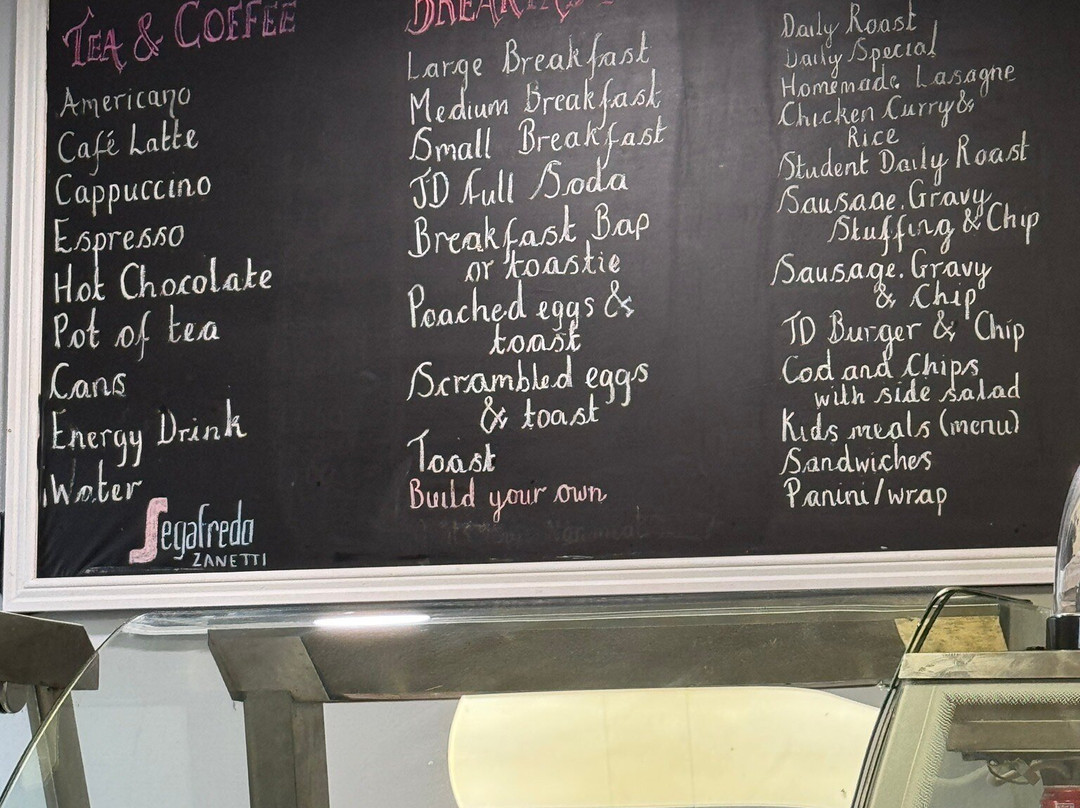 TEA & COFFEE
Americano
Café Latte
Cappuccino
Espresso
Hot Chocolate
Pot of tea
Cans
Energy Drink
Water
Segafredo
ZANETTI
BREAKFAST
Large Breakfast
Medium Breakfast
Small Breakfast
JD full Soda
Breakfast Bap
or toastie
Poached eggs &
toast
Scrambled eggs
& toast
Toast
Build your own
Daily Roast
Daily Special
Homemade Lasagne
Chicken Curry &
Rice
Student Daily Roast
Sausage. Gravy
Stuffing & Chip
Sausage. Gravy
& Chip
JD Burger & Chip
Cod and Chips
with side salad
Kids meals (menu)
Sandwiches
Panini/wrap